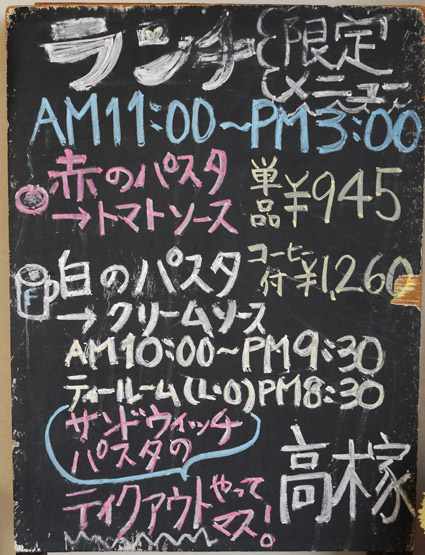 ランチ 限定メニュー
AM11:00~PM3:00
赤のパスタ 単品¥945
→トマトソース
白のパスタ コーヒー付¥1,260
→クリームソース
AM10:00~PM9:30
ティールーム(L・O)PM8:30
サンドウィッチ
パスタの
テイクアウトやってマス!